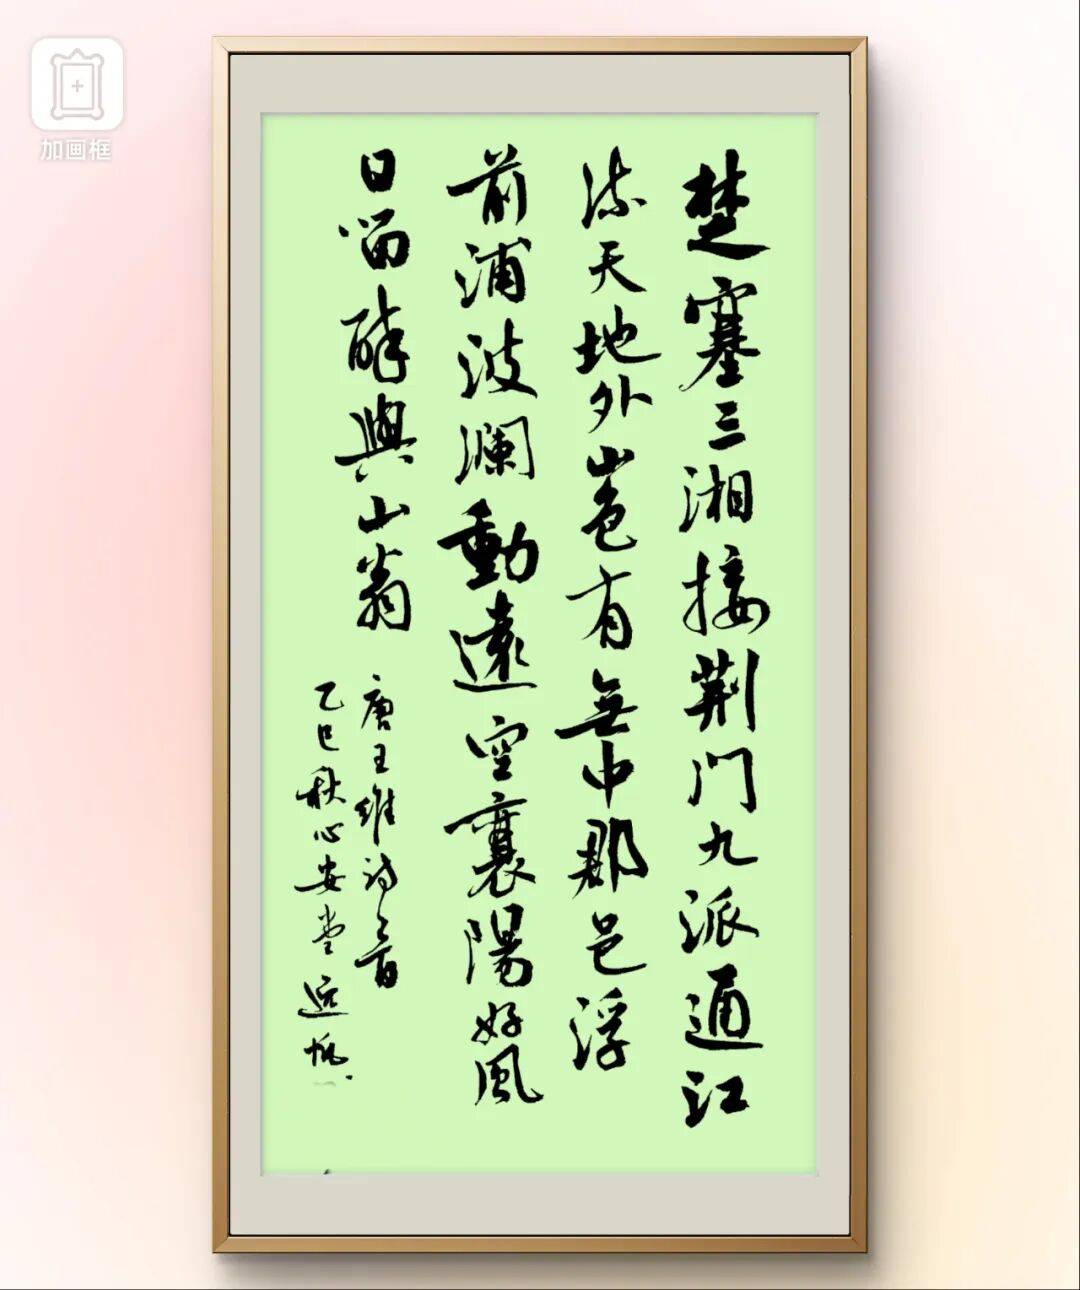 加画框
楚塞三湘接荆门九派通江
流天地外山色有無中郡邑浮
前浦波澜動遠空襄陽好風
日留醉與山翁
唐王维诗一首
乙巳秋心安堂远帆